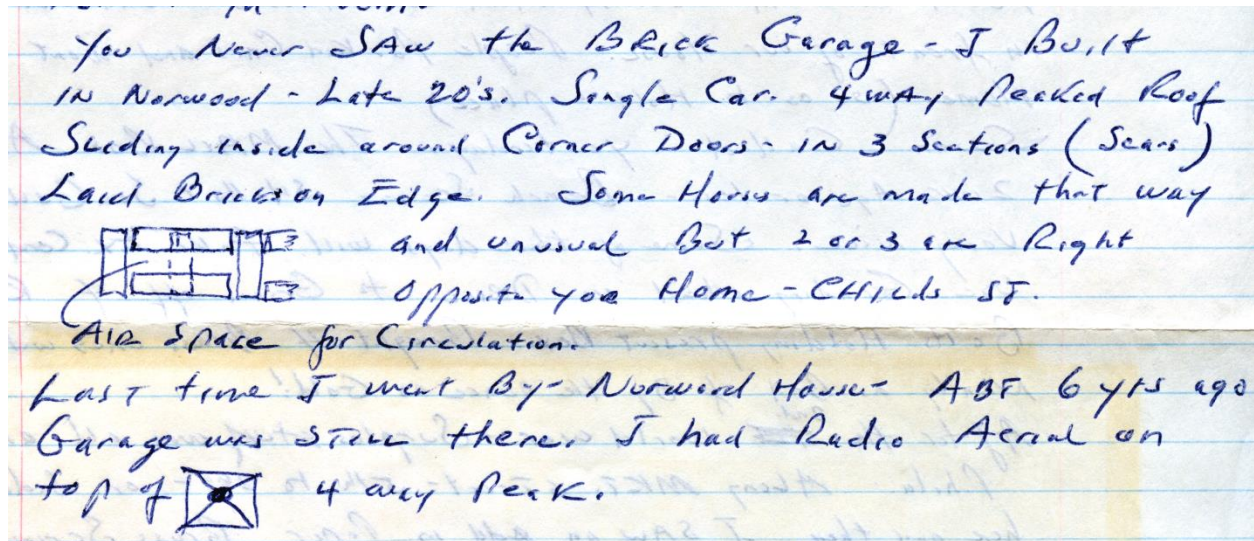 You Never SAW the BRICK Garage - I Built
IN Norwood - Late 20's. Single Car. 4 WAY Peaked Roof
Sliding inside around Corner Doors - IN 3 Sections (Sears)
Laid Bricks on Edge. Some Homes are made that way
and unusual But 2 or 3 are Right
Opposite your Home - CHILDS ST.
AIR SPACE for Circulation.
LAST time I went By - Norwood House - ABT 6 yrs ago
Garage was STILL there. I had Radio Aerial on
top of 4 way Peak.